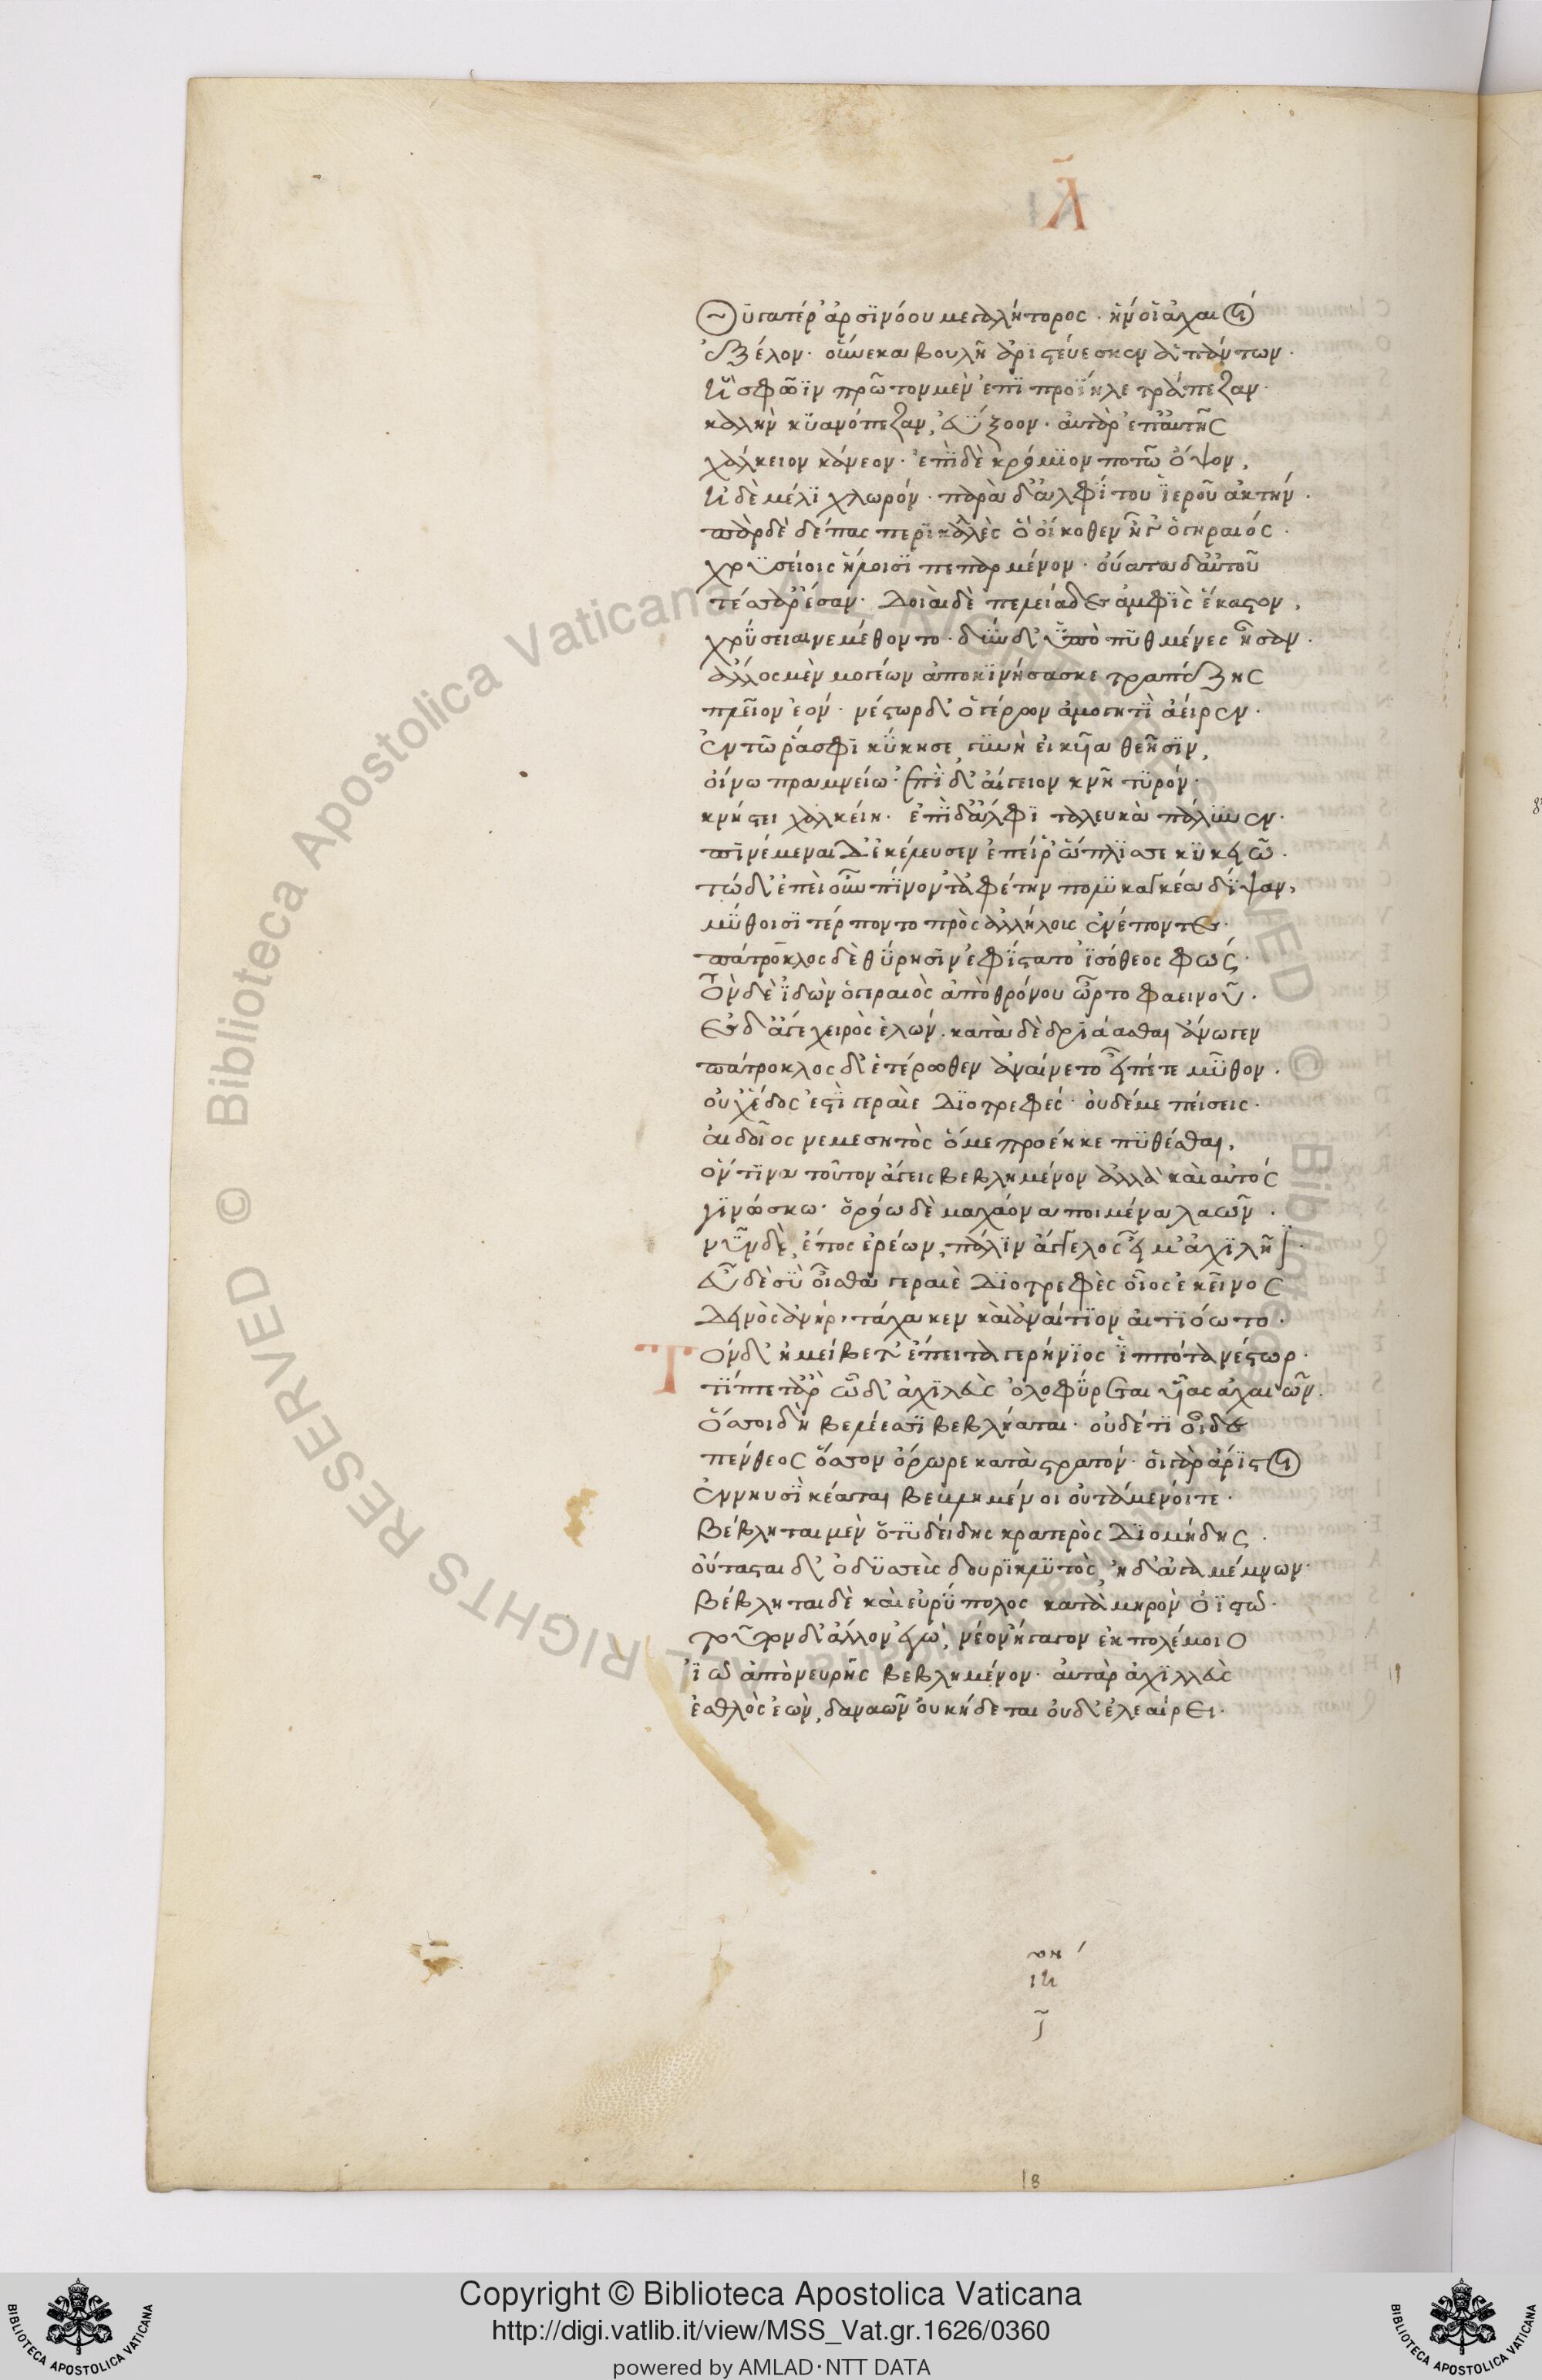 Λ
Θυγατέρ' ἀρσϊνόου μεγαλήτορος· ἥν οἱ ἀχαιοί
ἔξελον· οὕνεκα βουλῇ ἀριστεύεσκεν ἁπάντων·
ἥ σφωϊν πρῶτον μὲν ἐπϊ προΐηλε τράπεζαν·
καλὴν κϋανόπεζαν, ἐΰξοον· αὐτὰρ ἐπ' αὐτῆς
χάλκειον κάνεον· ἐπὶ δὲ κρόμϊον ποτῶ ὄψον,
ἠδὲ μέλϊ χλωρόν· παρὰ δ' ἀλφίτου ϊεροῦ ἀκτήν·
πὰρ δὲ δέπας περϊκαλλὲς ὃ οἴκοθεν ἦγ' ὁ γηραιός·
χρϋσείοις ἥλοισϊ πεπαρμένον· οὔατα δ' αὐτοῦ
τέσσαρ' ἔσαν· δοιαὶ δὲ πελειάδες ἀμφϊς ἕκαστον,
χρύσειαι νεμέθοντο· δύω δ' ὑπὸ πϋθμένες ἦσαν·
ἄλλος μὲν μογέων ἀποκϊνήσασκε τραπέζης
πλεῖον ἐόν· νέστωρ δ' ὁ γέρρων ἀμογητϊ ἀείρεν·
ἐν τῶ ῥά σφϊ κύκησε, γϋνὴ ἐικυῖα θεῆσϊν,
οἴνω πραμνείω· ἐπὶ δ' αἴγειον κνῆ τϋρόν·
κνήστει χαλκείη· ἐπὶ δ' ἄλφϊ τα λευκὰ πάλϋνεν·
πϊνέμεναι δ' ἐκέλευσεν ἐπεί ῥ' ὥπλϊσσε κϋκειῶ·
τὼ δ' ἐπεὶ οὖν πίνοντ' ἀφέτην πολϋκαγκέα δίψαν,
μύθοισϊ τέρποντο πρὸς ἀλλήλοις ἐνέποντες·
πάτροκλος δὲ θύρησϊν ἐφίστατο ϊσόθεος φώς·
τὸν δὲ ϊδὼν ὁ γεραιὸς ἀπὸ θρόνου ὦρτο φαεινοῦ·
ἐς δ' ἄγε χειρὸς ἑλών· κατὰ δὲ δρϊάασθαι ἄνωγεν
πάτροκλος δ' ἑτέρωθεν ἀναίνετο εἶπέ τε μῦθον·
οὐχ ἕδος ἐστϊ γεραιὲ δϊοτρεφές· οὐδέ με πείσεις·
αἰδοῖος νεμεσητὸς ὅ με προέηκε πϋθέσθαι,
ὅν τϊνα τοῦτον ἄγεις βεβλημένον ἀλλὰ καὶ αὐτός
γϊνώσκω· ὁρόω δὲ μαχάονα ποιμένα λαῶν·
νῦν δὲ, ἔπος ἐρέων, πάλϊν ἄγγελος εἶμ' ἀχϊλῆϊ·
εὖ δὲ σὺ οἶσθα γεραιὲ δϊοτρεφὲς οἷος ἐκεῖνος
δεινὸς ἀνήρ· τάχα κεν καὶ ἀναίτϊον αἰτϊόωτο·
Τὸν δ' ἠμείβετ' ἔπειτα γερήνϊος ϊππότα νέστωρ·
τίπτε τὰρ ὧδ' ἀχϊλεὺς ὀλοφύρεται υἷας ἀχαιῶν·
ὅσσοι δὴ βελέεσσϊ βεβλήαται· οὐδέ τϊ οἶδε
πένθεος ὅσσον ὄρωρε κατὰ στρατόν· οἱ γὰρ ἄρϊστοι
ἐν νηυσϊ κέαται βεβλημένοι οὐτάμενοί τε·
βέβληται μὲν ὁ τϋδείδης κρατερὸς δϊομήδης·
οὔτασται δ' ὀδϋσεὺς δουρϊκλϋτὸς ἠδ' ἀγαμέμνων·
βέβληται δὲ καὶ εὐρύπολος κατὰ μηρὸν ὀϊστῶ·
τοῦτον δ' ἄλλον ἐγὼ, νέον ἤγαγον ἐκ πολέμοιο
ἰῶ ἀπὸ νευρῆς βεβλημένον· αὐτὰρ ἀχϊλλεὺς
ἐσθλὸς ἐὼν, δαναῶν οὐ κήδεται οὐδ' ἐλεαίρει·
18
© Biblioteca Apostolica Vaticana ALL RIGHTS RESERVED © Biblioteca Apostolica Vaticana ALL RIGHTS RESERVED
BIBLIOTECA APOSTOLICA VATICANA
Copyright © Biblioteca Apostolica Vaticana
http://digi.vatlib.it/view/MSS_Vat.gr.1626/0360
powered by AMLAD·NTT DATA
BIBLIOTECA APOSTOLICA VATICANA